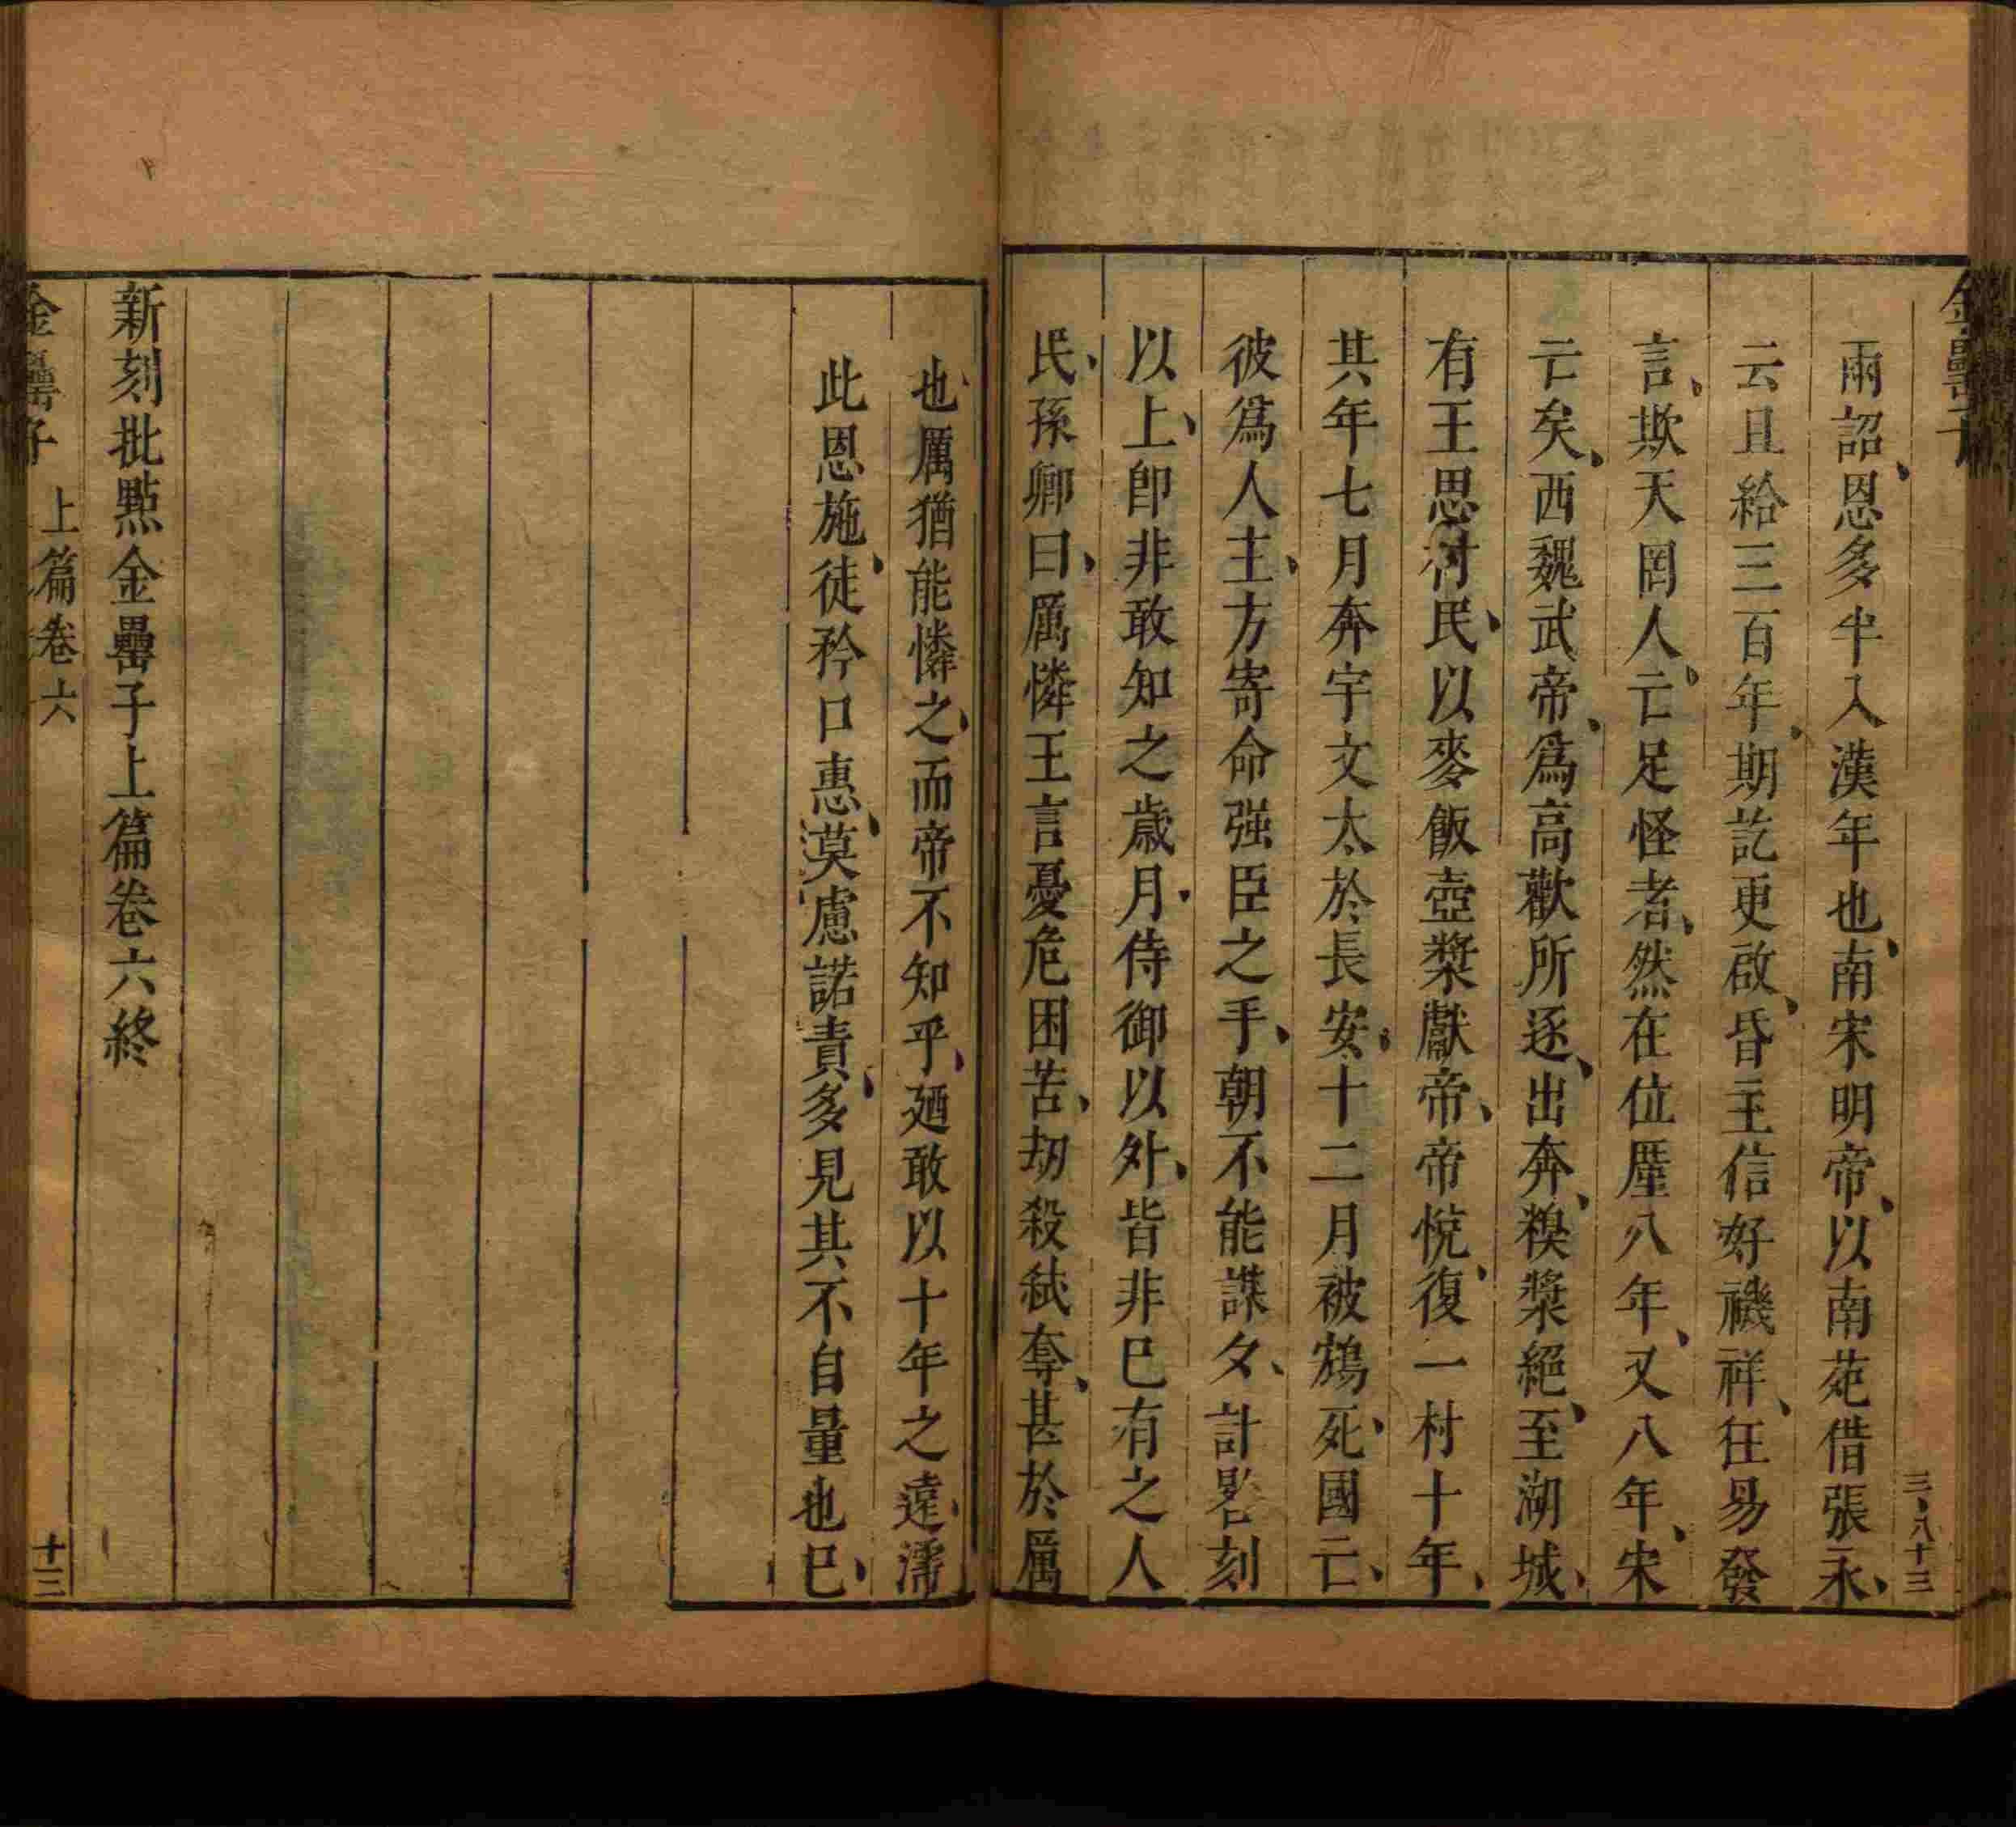 金罍子
三八十三
兩詔恩多半入漢年也南宋明帝以南苑借張永
云且給三百年期訖更啟昏主信好禨祥狂易發
言欺天罔人亡足怪者然在位厪八年又八年宋
亡矣西魏武帝爲高歡所逐出奔糗漿絕至湖城
有王思村民以麥飯壺漿獻帝帝悅復一村十年
其年七月奔宇文太於長安十二月被鴆死國亡
彼爲人主方寄命强臣之手朝不能謀夕計晷刻
以上卽非敢知之歲月侍御以外皆非巳有之人
民孫卿曰厲憐王言憂危困苦劫殺弑奪甚於厲
也厲猶能憐之而帝不知乎廼敢以十年之遠濡
此恩施徒矜口惠莫慮諾責多見其不自量也巳
新刻批㸃金罍子上篇卷六終
金罍子 上篇卷六 十三